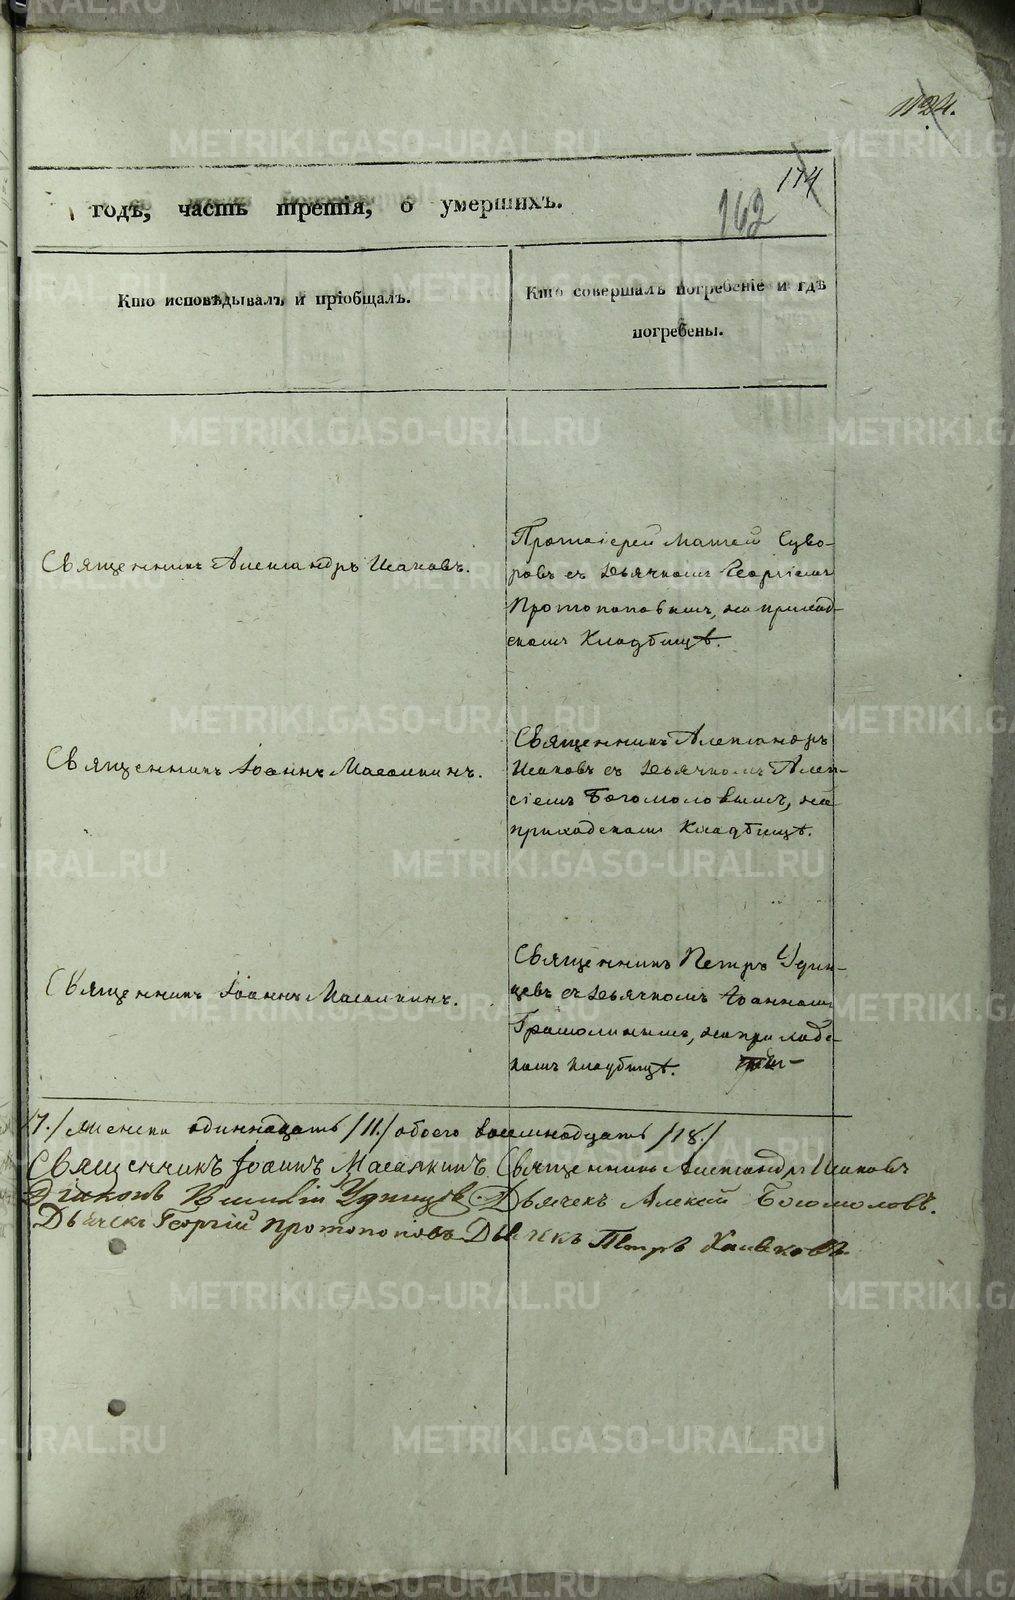 174
162
годъ, часть третія, о умершихъ.
Кто исповѣдывалъ и пріобщалъ.
Кто совершалъ погребеніе и гдѣ
погребены.
Священникъ Александръ Исаковъ.
Протоіерей Матѳей Суво-
ровъ съ дьячкомъ Георгіемъ
Протопоповымъ, на приход-
скомъ Кладбищѣ.
Священникъ Іоаннъ Масалкинъ.
Священникъ Александръ
Исаковъ съ дьячкомъ Алек-
сіемъ Богомоловымъ, на
приходскомъ Кладбищѣ.
Священникъ Іоаннъ Масалкинъ.
Священникъ Петръ Удин-
цевъ съ дьячкомъ Іоанномъ
на приход-
скомъ кладбищѣ.
/7./ женска одиннадцать /11./ обоего восемнадцать /18./
Священникъ Іоаннъ Масалкинъ Священникъ Александръ Исаковъ
Діаконъ Удинцовъ. Дьячекъ Алексій Богомоловъ.
Дьячекъ Георгій Протопоповъ Дьячекъ Петръ
METRIKI.GASO-URAL.RU